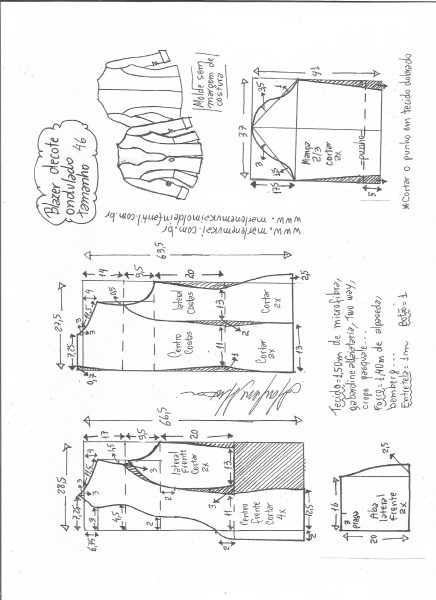 Blazer decote
ondulado
tamanho 46
Molde sem
margem de
costura
www.marlenemukai.com.br
www.marlenemukaimoldeinfantil.com.br
37
41
3,5
1
3
1,5
17,5
Manga
2/3
Cortar
2x
punho
5
*Cortar o punho em tecido dobrado
27,5
63,5
7,25
3
11,5
4
1,5
19
9,5
20
0,7
3
Centro
Costas
lateral
Costas
13
11
2
1
Cortar
2x
Cortar
2x
13
2,5
28,5
66,5
7,25
3
11,5
4
17
9,5
20
3
6,75
4,5
3
2
2
lateral
Frente
Cortar
2x
13
11
3
Centro
frente
Cortar
4x
12,5
2
2
Tecido=1,50m de microfibra,
gabardine alfaiataria, two way,
crepe pasquale...
Forro=1,40m de alpaseda,
bemberg...
Entretela=1m
Botão=1
16
20
2,5
3
prega
Aba
lateral
frente
2x